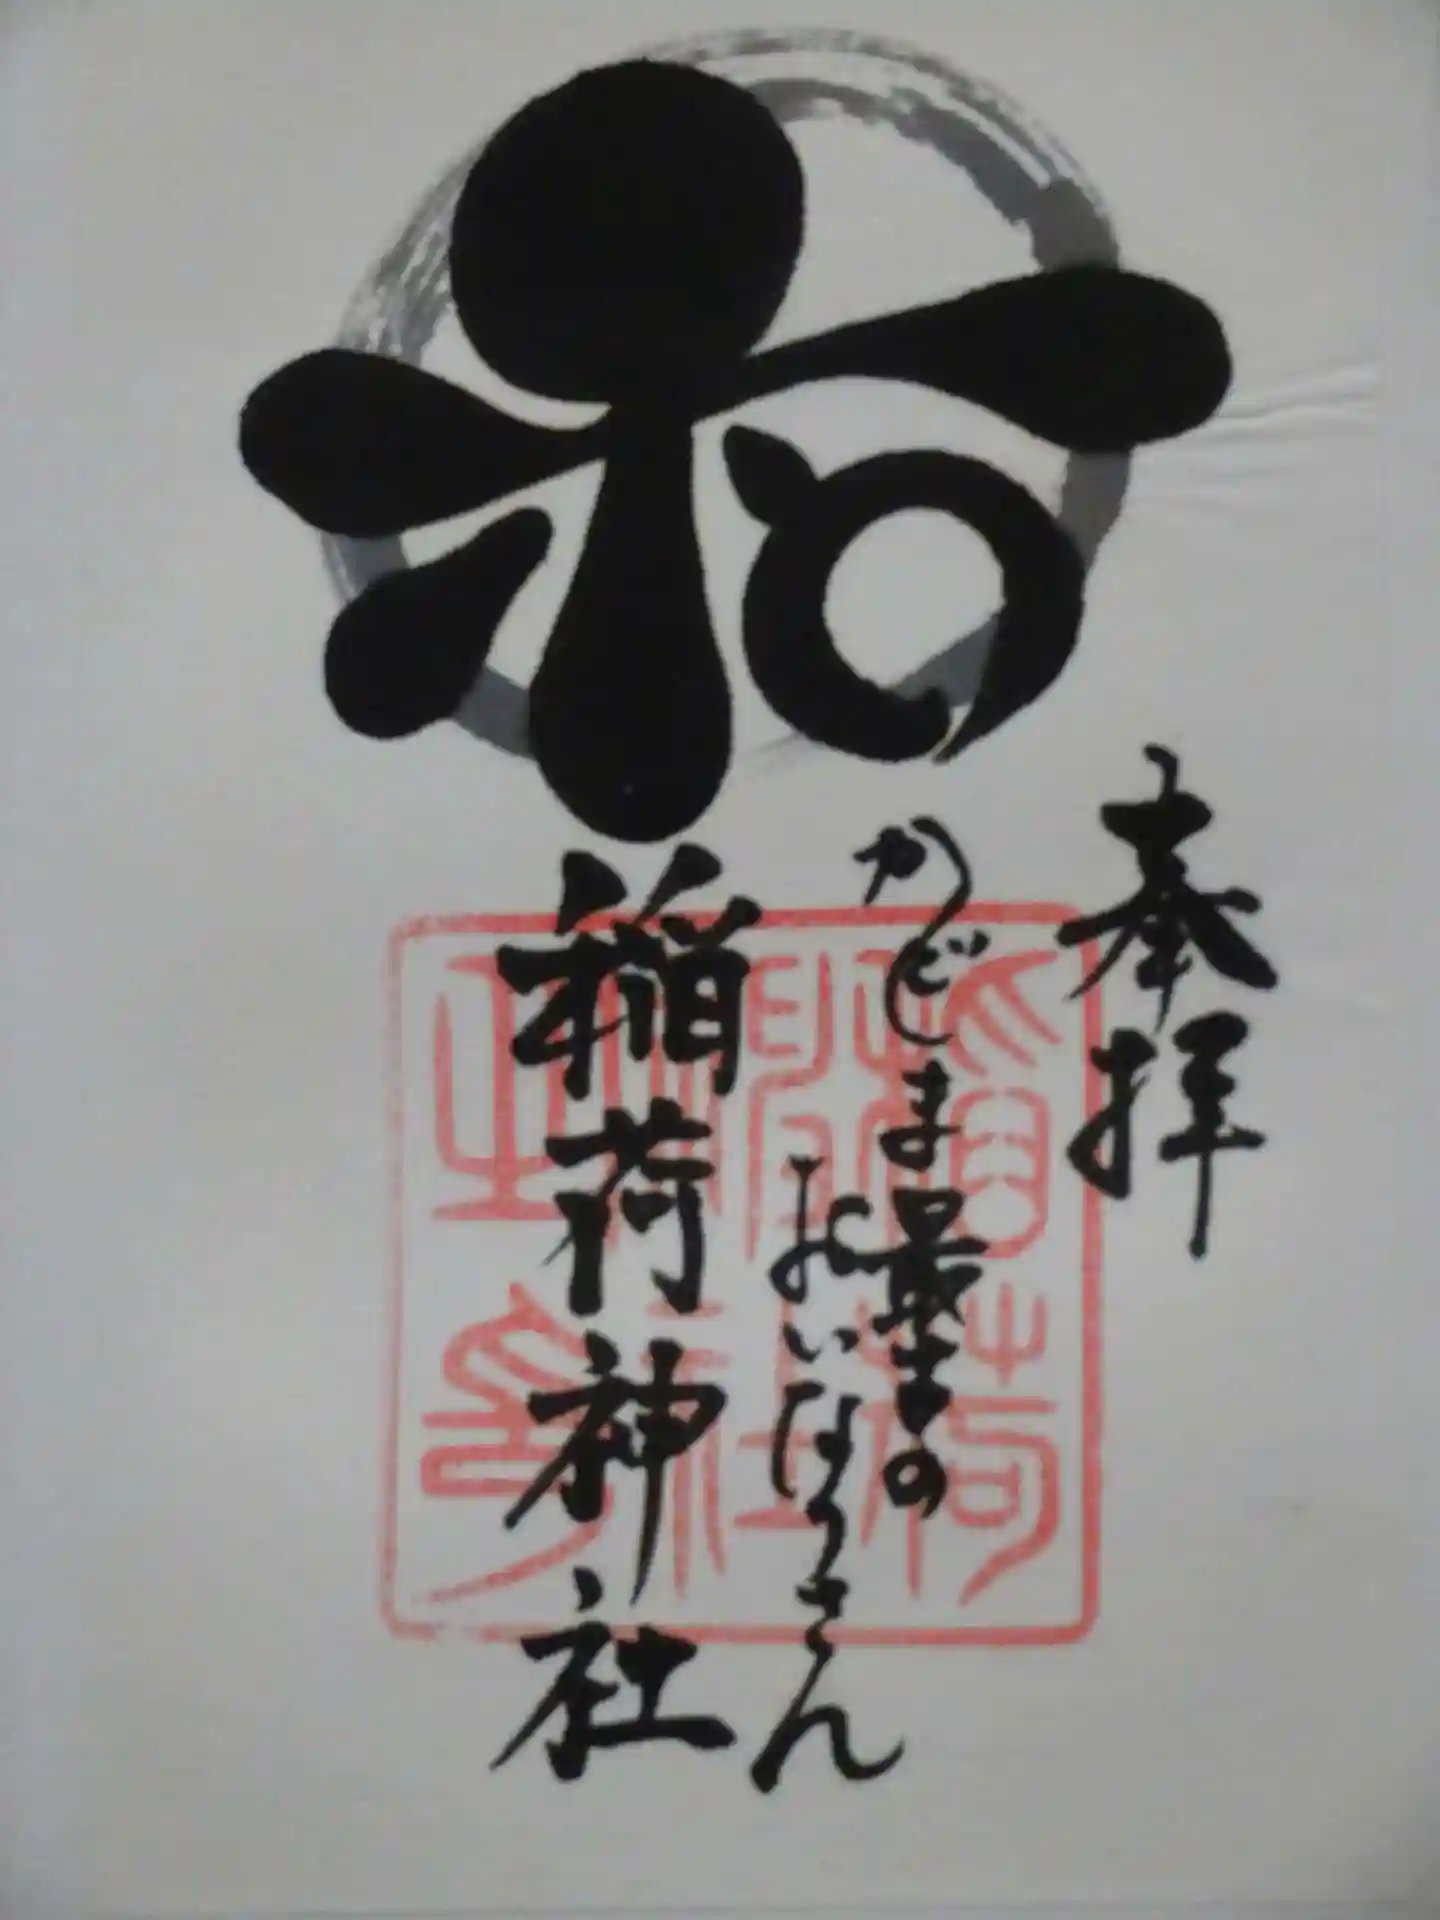 和
奉拝
かどま最古の
おいなりさん
稲荷神社
稲荷
神社
之印